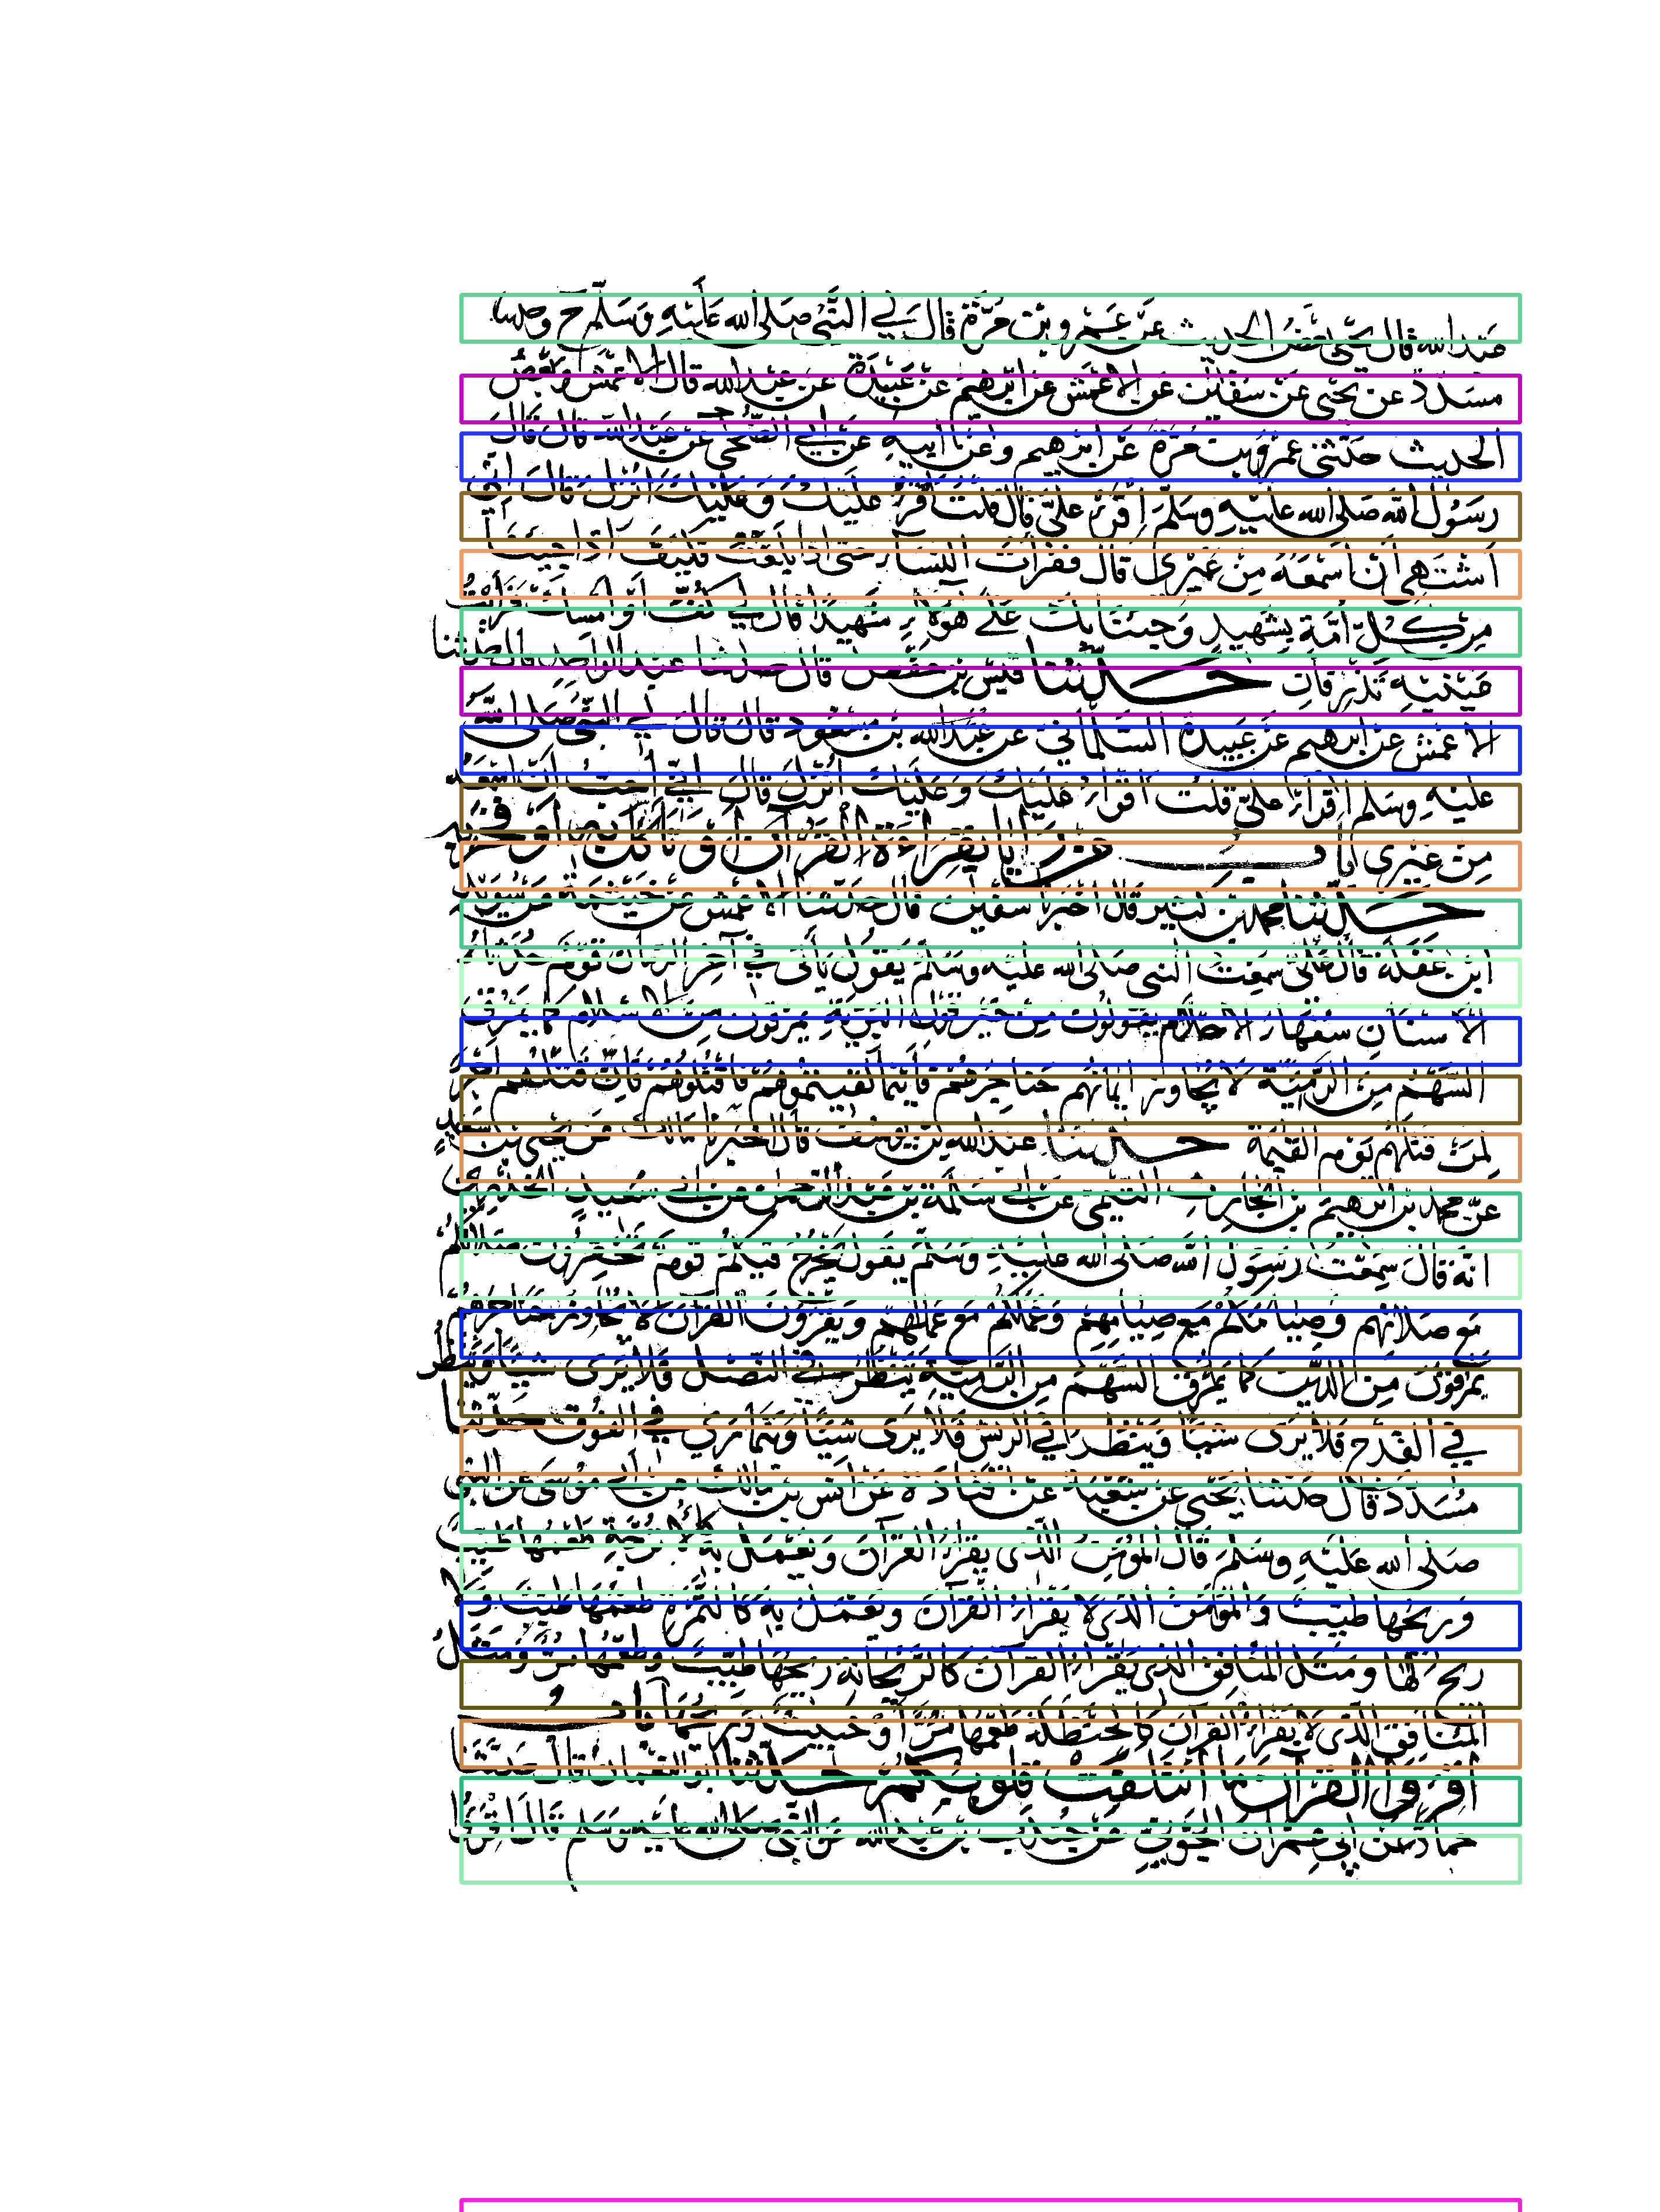 صد الله قال يحيى بعض الحديث عن عمرو بن مرة قال لي النبي صلى الله عليه وسلم ح وحدثنا
مسدد عن يحيى عن سفيان عن الاعمش عن ابرهيم عن عبيدة عن عبد الله قال الاعمش وبعض
الحديث حدثني عمرو بن مرة عن ابرهيم وعن ابيه عن ابي الضحى عن عبد الله قال قال
رسول الله صلى الله عليه وسلم اقرء علي قال قلت اقرء عليك وعليك انزل قال اني
اشتهي ان اسمعه من غيري قال فقرات النساء حتى اذا بلغت فكيف اذا جئنا
من كل امة بشهيد وجئنا بك على هؤلاء شهيدا قال لي كف او امسك فرايت
عينيه تذرفان حدثنا قيس بن حفص قال حدثنا عبد الواحد قال حدثنا
الاعمش عن ابرهيم عن عبيدة السلماني عن عبد الله بن مسعود قال قال لي النبي صلى الله
عليه وسلم اقرأ علي قلت اقرأ عليك وعليك انزل قال اني احب ان اسمعه
من غيري باب من رايا بقراءة القرآن او تأكل به او فخر به
حدثنا محمد بن كثير قال اخبرنا سفيان قال حدثنا الاعمش عن خيثمة عن سويد
ابن غفلة قال علي سمعت النبي صلى الله عليه وسلم يقول يأتي في آخر الزمان قوم حدثاء
الاسنان سفهاء الاحلام يقولون من خير قول البرية يمرقون من الاسلام كما يمرق
السهم من الرمية لا يجاوز ايمانهم حناجرهم فأينما لقيتموهم فاقتلوهم فان قتلهم اجر
لمن قتلهم يوم القيمة حدثنا عبد الله بن يوسف قال اخبرنا مالك عن يحيى بن سعيد
عن محمد بن ابرهيم بن الحارث التيمي عن ابي سلمة بن عبد الرحمن عن ابي سعيد الخدري
انه قال سمعت رسول الله صلى الله عليه وسلم يقول يخرج فيكم قوم تحقرون صلاتكم
مع صلاتهم وصيامكم مع صيامهم وعملكم مع عملهم ويقرؤن القرآن لا يجاوز حناجرهم
يمرقون من الدين كما يمرق السهم من الرمية ينظر في النصل فلا يرى شيئا وينظر
في القدح فلا يرى شيئا وينظر في الريش فلا يرى شيئا ويتمارى في الفوق حدثنا
مسدد قال حدثنا يحيى عن شعبة عن قتادة عن انس بن مالك عن ابي موسى عن النبي
صلى الله عليه وسلم قال المؤمن الذي يقرأ القرآن ويعمل به كالاترجة طعمها طيب
وريحها طيب والمؤمن الذي لا يقرأ القرآن ويعمل به كالتمرة طعمها طيب ولا
ريح لها ومثل المنافق الذي يقرأ القرآن كالريحانة ريحها طيب وطعمها مر ومثل
المنافق الذي لا يقرأ القرآن كالحنظلة طعمها مر او خبيث وريحها باب
اقرؤا القرآن ما ائتلفت قلوبكم حدثنا ابو النعمان قال حدثنا
حماد عن ابي عمران الجوني عن جندب بن عبد الله عن النبي صلى الله عليه وسلم قال اقرؤا